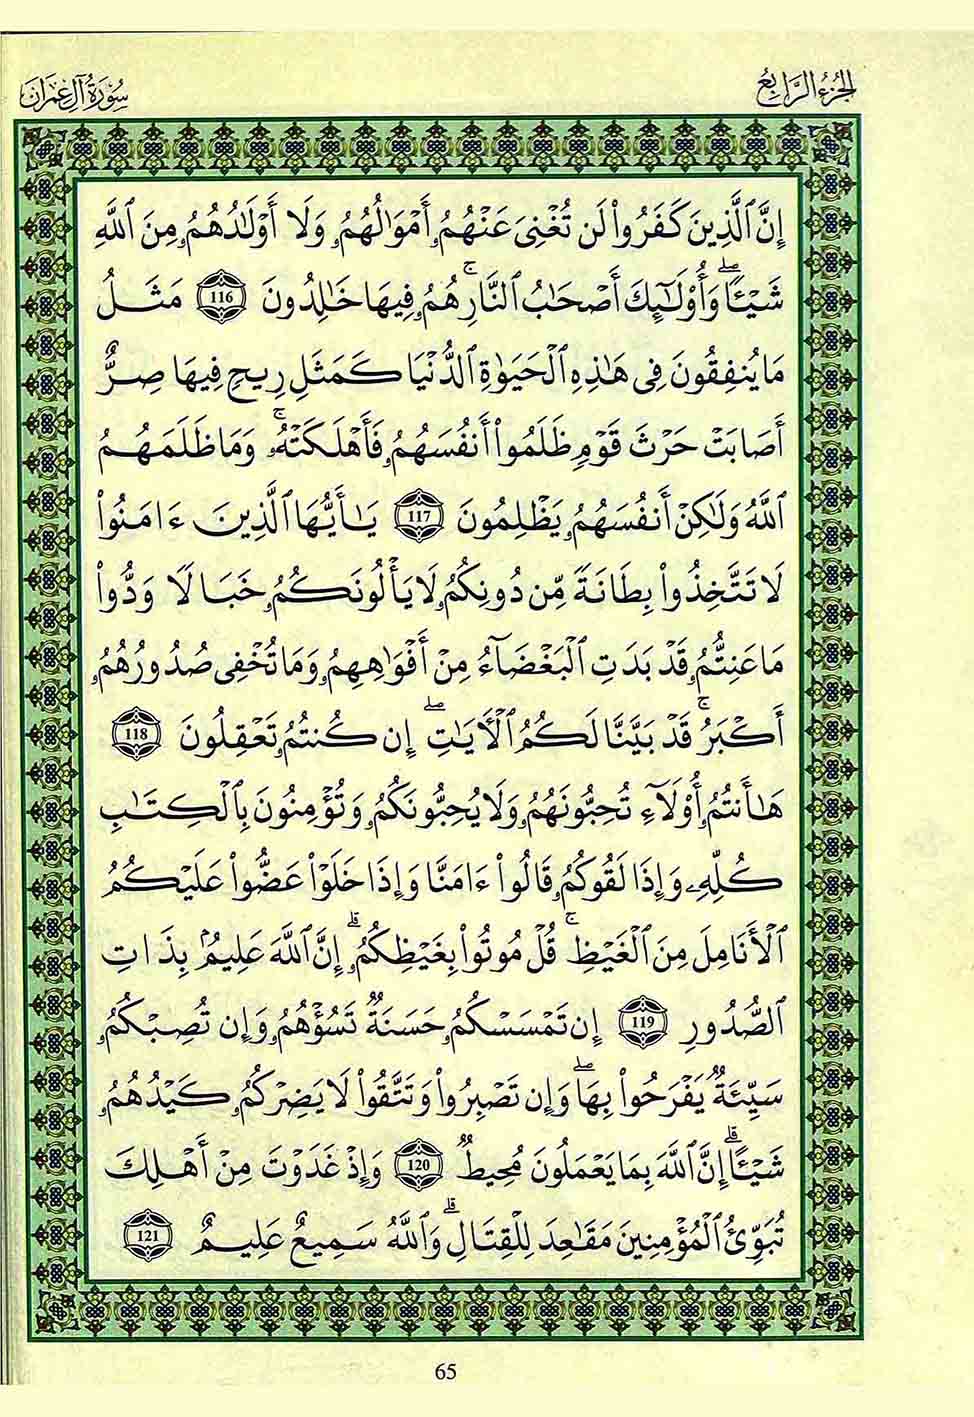 سُورَةُ آلِ عِمْرَانَ
الجُزْءُ الرَّابِعُ
إِنَّ ٱلَّذِينَ كَفَرُواْ لَن تُغْنِىَ عَنْهُمُۥٓ أَمْوَٰلُهُمُۥ وَلَآ أَوْلَٰدُهُمُۥ مِنَ ٱللَّهِ
شَيْـًٔاۖ وَأُوْلَٰٓئِكَ أَصْحَٰبُ ٱلنَّارِۚ هُمُۥ فِيهَا خَٰلِدُونَ 116 مَثَلُ
مَا يُنفِقُونَ فِى هَٰذِهِ ٱلْحَيَوٰةِ ٱلدُّنْيَا كَمَثَلِ رِيحٍ فِيهَا صِرٌّ
أَصَابَتْ حَرْثَ قَوْمٍ ظَلَمُوٓاْ أَنفُسَهُمُۥ فَأَهْلَكَتْهُۚ وَمَا ظَلَمَهُمُ
ٱللَّهُ وَلَٰكِنْ أَنفُسَهُمُۥ يَظْلِمُونَ 117 يَٰٓأَيُّهَا ٱلَّذِينَ ءَامَنُواْ
لَا تَتَّخِذُواْ بِطَانَةً مِّن دُونِكُمُۥ لَا يَأْلُونَكُمُۥ خَبَالًا وَدُّواْ
مَا عَنِتُّمُۥ قَدْ بَدَتِ ٱلْبَغْضَآءُ مِنْ أَفْوَٰهِهِمُۥ وَمَا تُخْفِى صُدُورُهُمُۥٓ
أَكْبَرُۚ قَدْ بَيَّنَّا لَكُمُ ٱلْأٓيَٰتِۖ إِن كُنتُمُۥ تَعْقِلُونَ 118
هَٰٓأَنتُمُۥٓ أُوْلَآءِ تُحِبُّونَهُمُۥ وَلَا يُحِبُّونَكُمُۥ وَتُؤْمِنُونَ بِٱلْكِتَٰبِ
كُلِّهِۦ وَإِذَا لَقُوكُمُۥ قَالُوٓاْ ءَامَنَّا وَإِذَا خَلَوْاْ عَضُّواْ عَلَيْكُمُ
ٱلْأَنَامِلَ مِنَ ٱلْغَيْظِۚ قُلْ مُوتُواْ بِغَيْظِكُمُۥٓۗ إِنَّ ٱللَّهَ عَلِيمُۢ بِذَاتِ
ٱلصُّدُورِ 119 إِن تَمْسَسْكُمُۥ حَسَنَةٌ تَسُؤْهُمُۥ وَإِن تُصِبْكُمُۥ
سَيِّئَةٌ يَفْرَحُواْ بِهَاۖ وَإِن تَصْبِرُواْ وَتَتَّقُواْ لَا يَضِرْكُمُۥ كَيْدُهُمُۥ
شَيْـًٔاۗ إِنَّ ٱللَّهَ بِمَا يَعْمَلُونَ مُحِيطٌ 120 وَإِذْ غَدَوْتَ مِنْ أَهْلِكَ
تُبَوِّئُ ٱلْمُؤْمِنِينَ مَقَٰعِدَ لِلْقِتَالِۗ وَٱللَّهُ سَمِيعٌ عَلِيمٌ 121
65